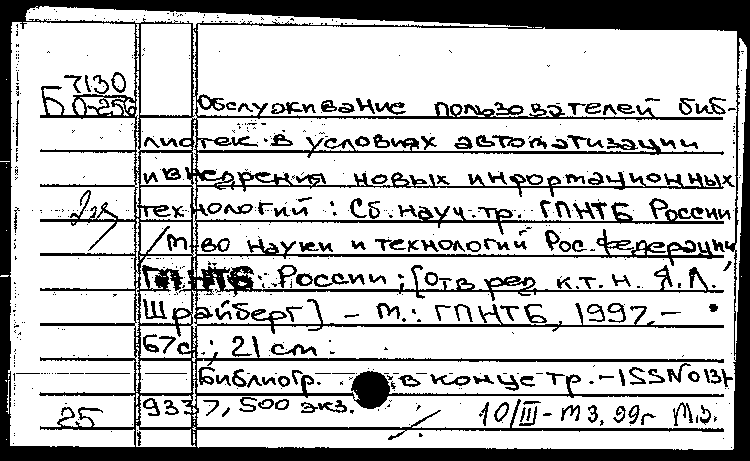 7130
Б О-256
Обслуживание пользователей биб-
лиотек в условиях автоматизации
и внедрения новых информационных
технологий : Сб. науч. тр. ГПНТБ России
/ М-во науки и технологий Рос. Федерации,
ГПНТБ России; [Отв. ред. к.т.н. Я.Л.
Шрайберг]. - М.: ГПНТБ, 1997. -
67с.; 21 см.
Библиогр. в конце тр. - ISSN 0131
9337, 500 экз.
25
10/III - М3, 99г